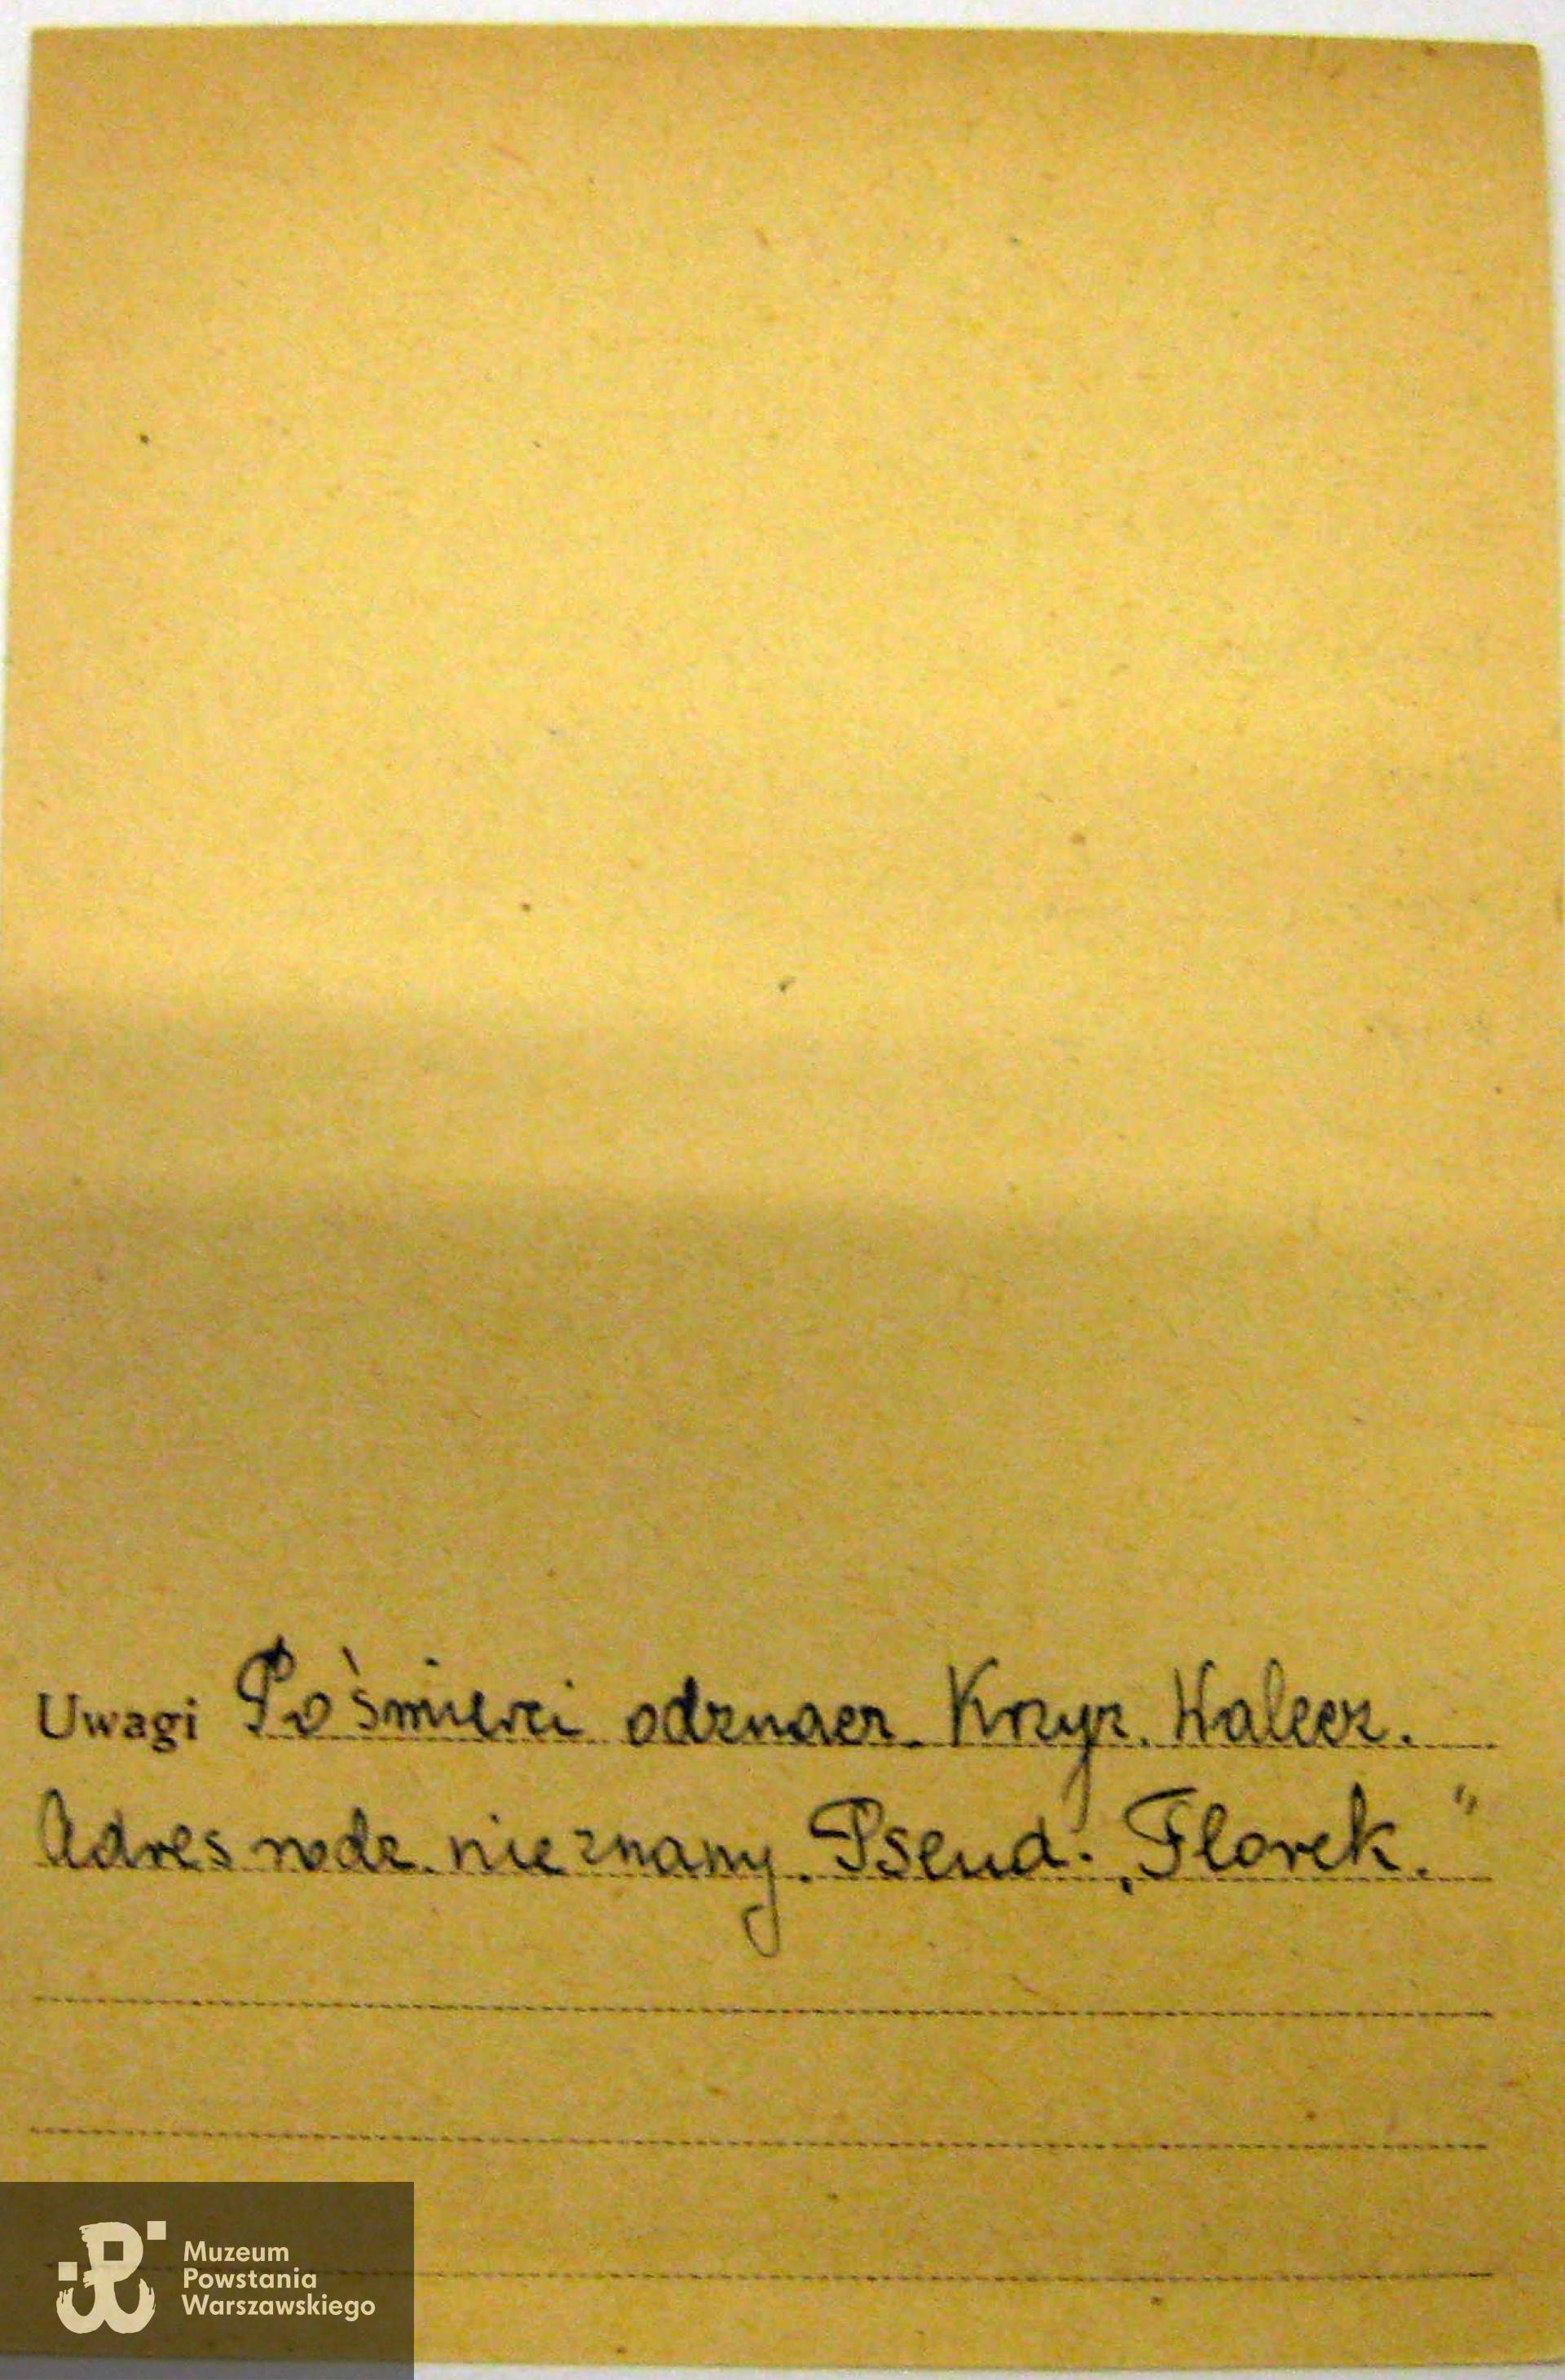 Uwagi Po śmierci odznacz. Krzyż. Walecz.
Adres rodz. nieznany. Pseud. „Florek."
Muzeum
Powstania
Warszawskiego